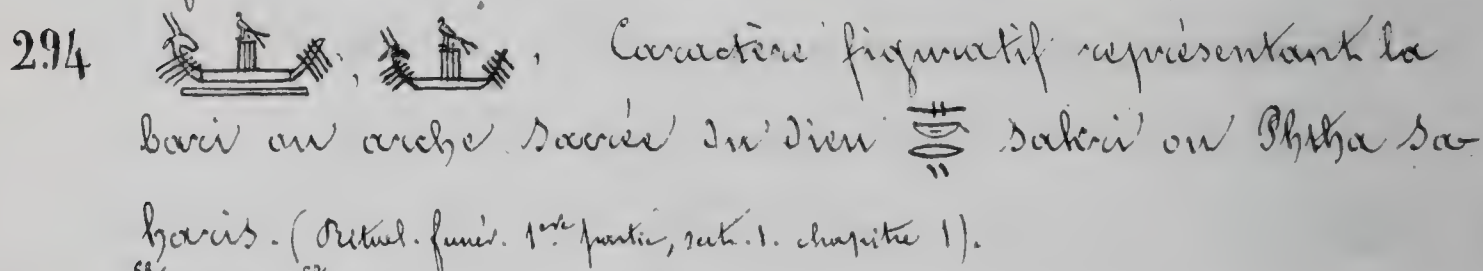 294 , . Caractère figuratif représentant la
bari ou arche sacrée du dieu 𓊃𓎡𓂋𓏭 Sakri ou Phtha Sa-
karis. (Rituel. funér. 1ère partie, sect. 1. chapitre 1).